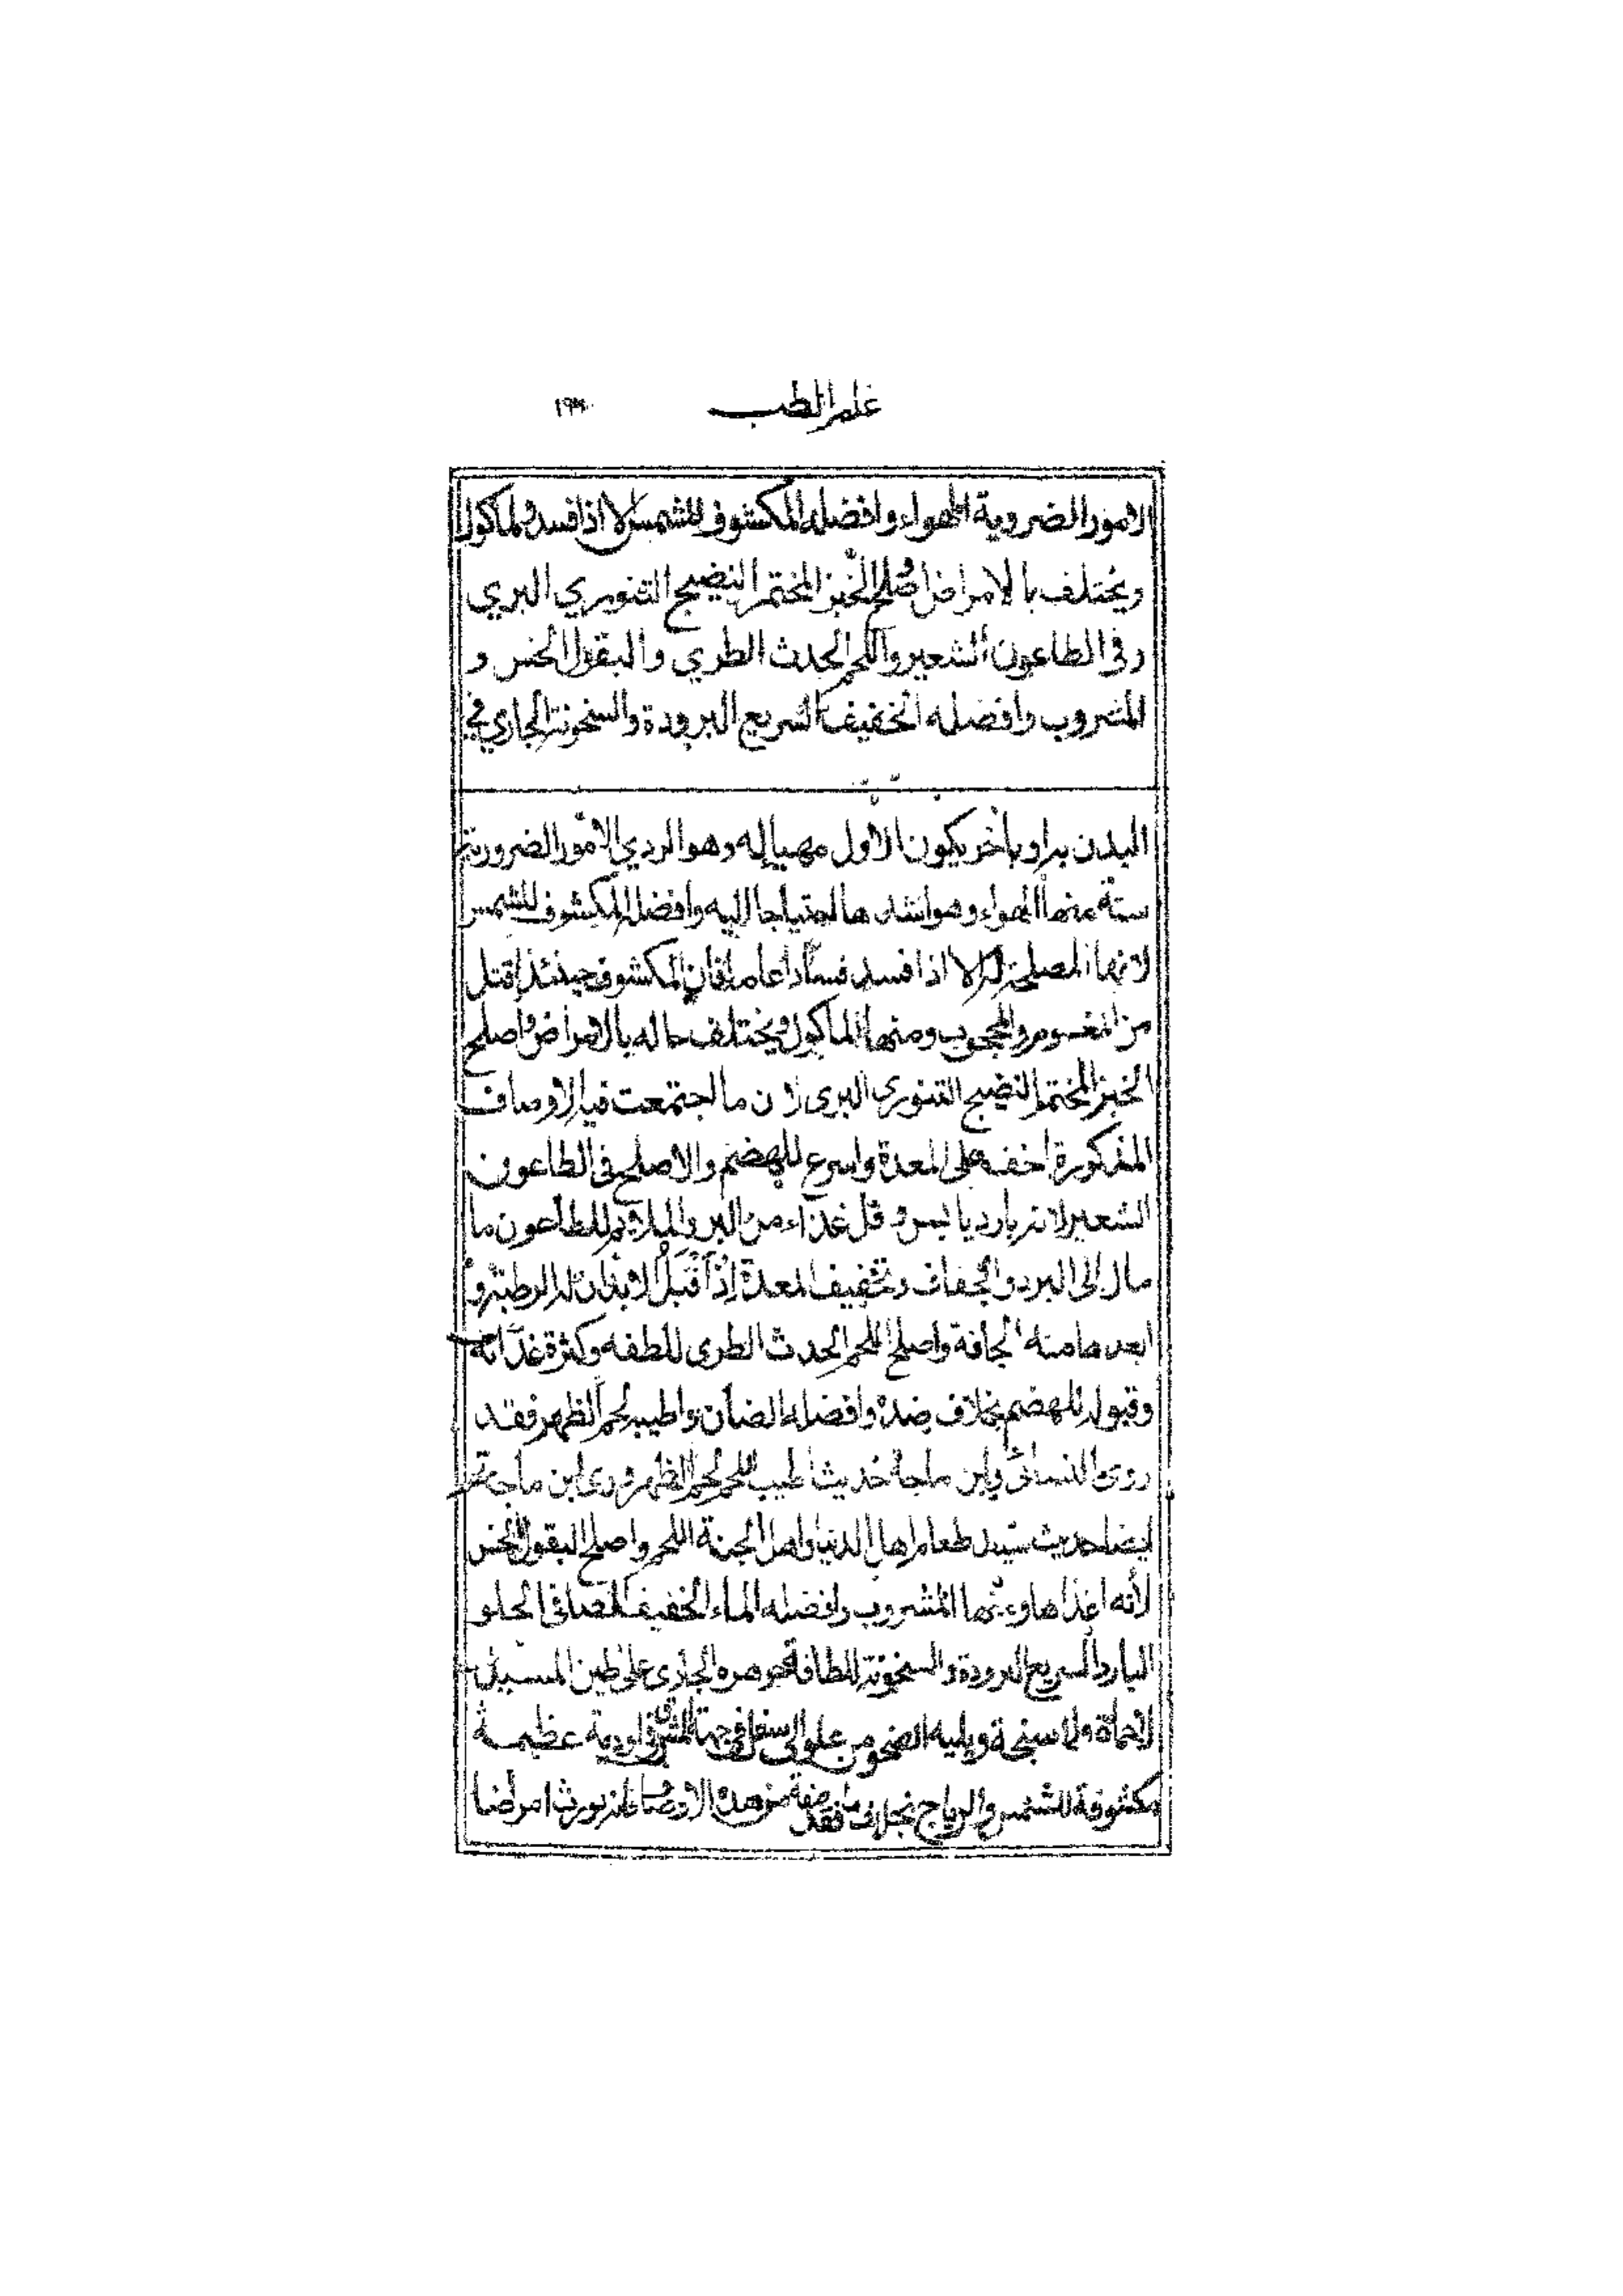 علم الطب
الامور الضرورية الهواء وافضله المكشوف للشمس الا اذا فسد والماكول
ويختلف بالامراض واصلح الخبز المختمر النضيج التنوري البري
وفي الطاعون الشعير واللحم الحدث الطري والبقول الخس و
المشروب وافضله الخفيف السريع البرودة والسخونة الجاري في
البدن بداو باخر يكون الاول مهيا له وهو الردي الامور الضرورية
ستة منها الهواء وهو اشدها احتياجا اليه وافضله المكشوف للشمس
لانها المصلحة له الا اذا فسد فسادا عاما فان المكشوف حينئذ اقتل
من المغموم والمحجوب ومنها الماكول ويختلف حاله بالامراض واصلح
الخبز المختمر النضيج التنوري البري لان ما اجتمعت فيه الاوصاف
المذكورة اخف على المعدة واسرع للهضم والاصلح في الطاعون
الشعير لانه بارد يابس وقل غذاء من البر والملايم للطاعون ما
مال الى البرد والجفاف وتخفيف المعدة اذ اقبل الابدان له الرطبة و
ابعدها منه الجافة واصلح اللحم الحدث الطري للطفه وكثرة غذائه
وقبوله للهضم بخلاف ضده وافضله الضان واطيبه لحم الظهر فقد
روى النسائي وابن ماجة حديث اطيب اللحم لحم الظهر وروى ابن ماجة
ايضا حديث سيد طعام اهل الدنيا واهل الجنة اللحم واصلح البقول الخس
لأنه اغذاها ومنها المشروب وافضله الماء الخفيف الصافي الحلو
البارد السريع البرودة والسخونة للطافة جوهره الجاري على طين المسيل
لا حماة ولا سبخة ويليه الصخر من علو الى سفل في جهة الشرق اودية عظيمة
مكشوفة للشمس والرياح بخلاف ما فقد صفة من هذه الاوصاف فانه يورث امراضا